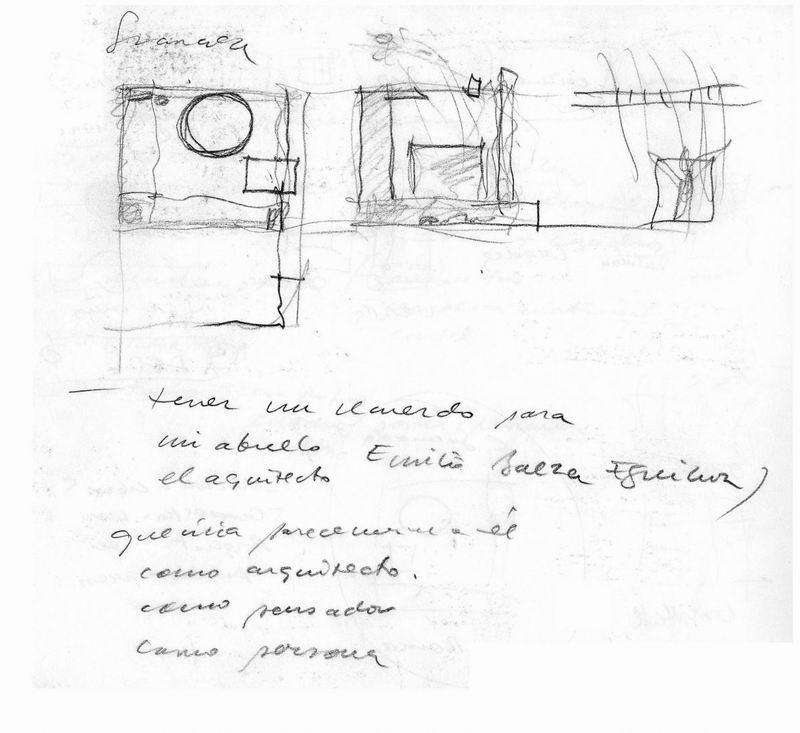 Granada
— tener un recuerdo para
mi abuelo Emilio Baeza Eguiluz)
el aquitecto
querría parecerme a él
como arquitecto.
como pensador
como persona